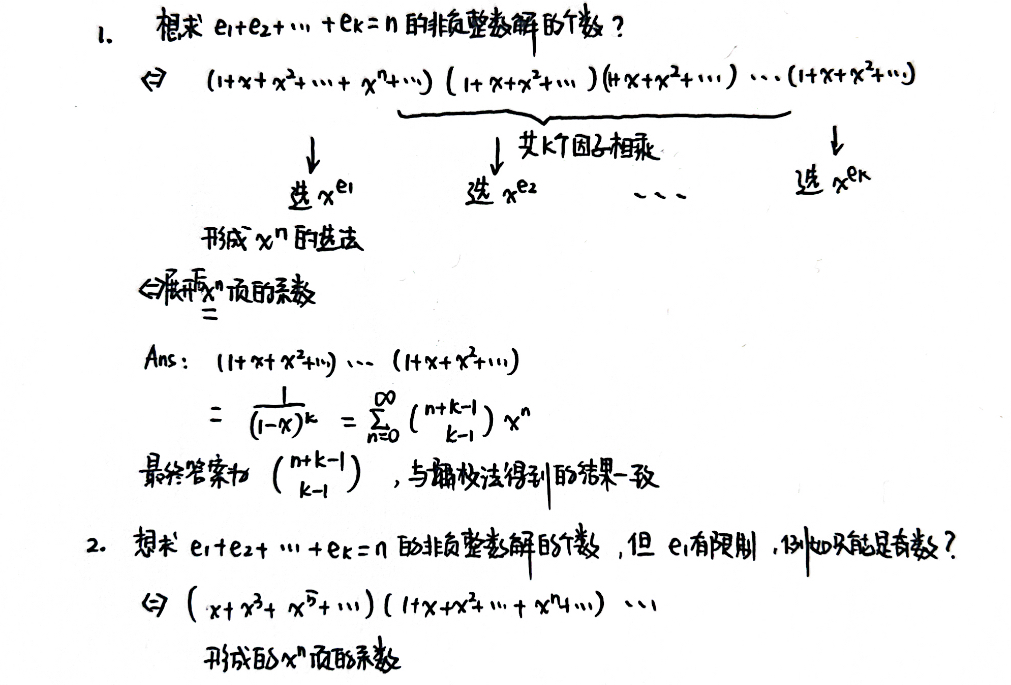 1. 想求 e₁+e₂+…+eₖ=n 的非负整数解的个数？
⇔ (1+x+x²+…+xⁿ+…)(1+x+x²+…)(1+x+x²+…)…(1+x+x²+…)
↓ ↓ 共k个因子相乘 ↓
选 x^e₁ 选 x^e₂ … 选 x^eₖ
形成 xⁿ 的选法
⇔展开后xⁿ项的系数
Ans: (1+x+x²+…)…(1+x+x²+…)
= 1/(1-x)^k = ∑_{n=0}^{∞} (n+k-1 k-1) xⁿ
最终答案为 (n+k-1 k-1)，与隔板法得到的结果一致
2. 想求 e₁+e₂+…+eₖ=n 的非负整数解的个数，但 e₁有限制，例如只能是奇数？
⇔ (x+x³+x⁵+…)(1+x+x²+…+xⁿ+…)…
形成的xⁿ项的系数